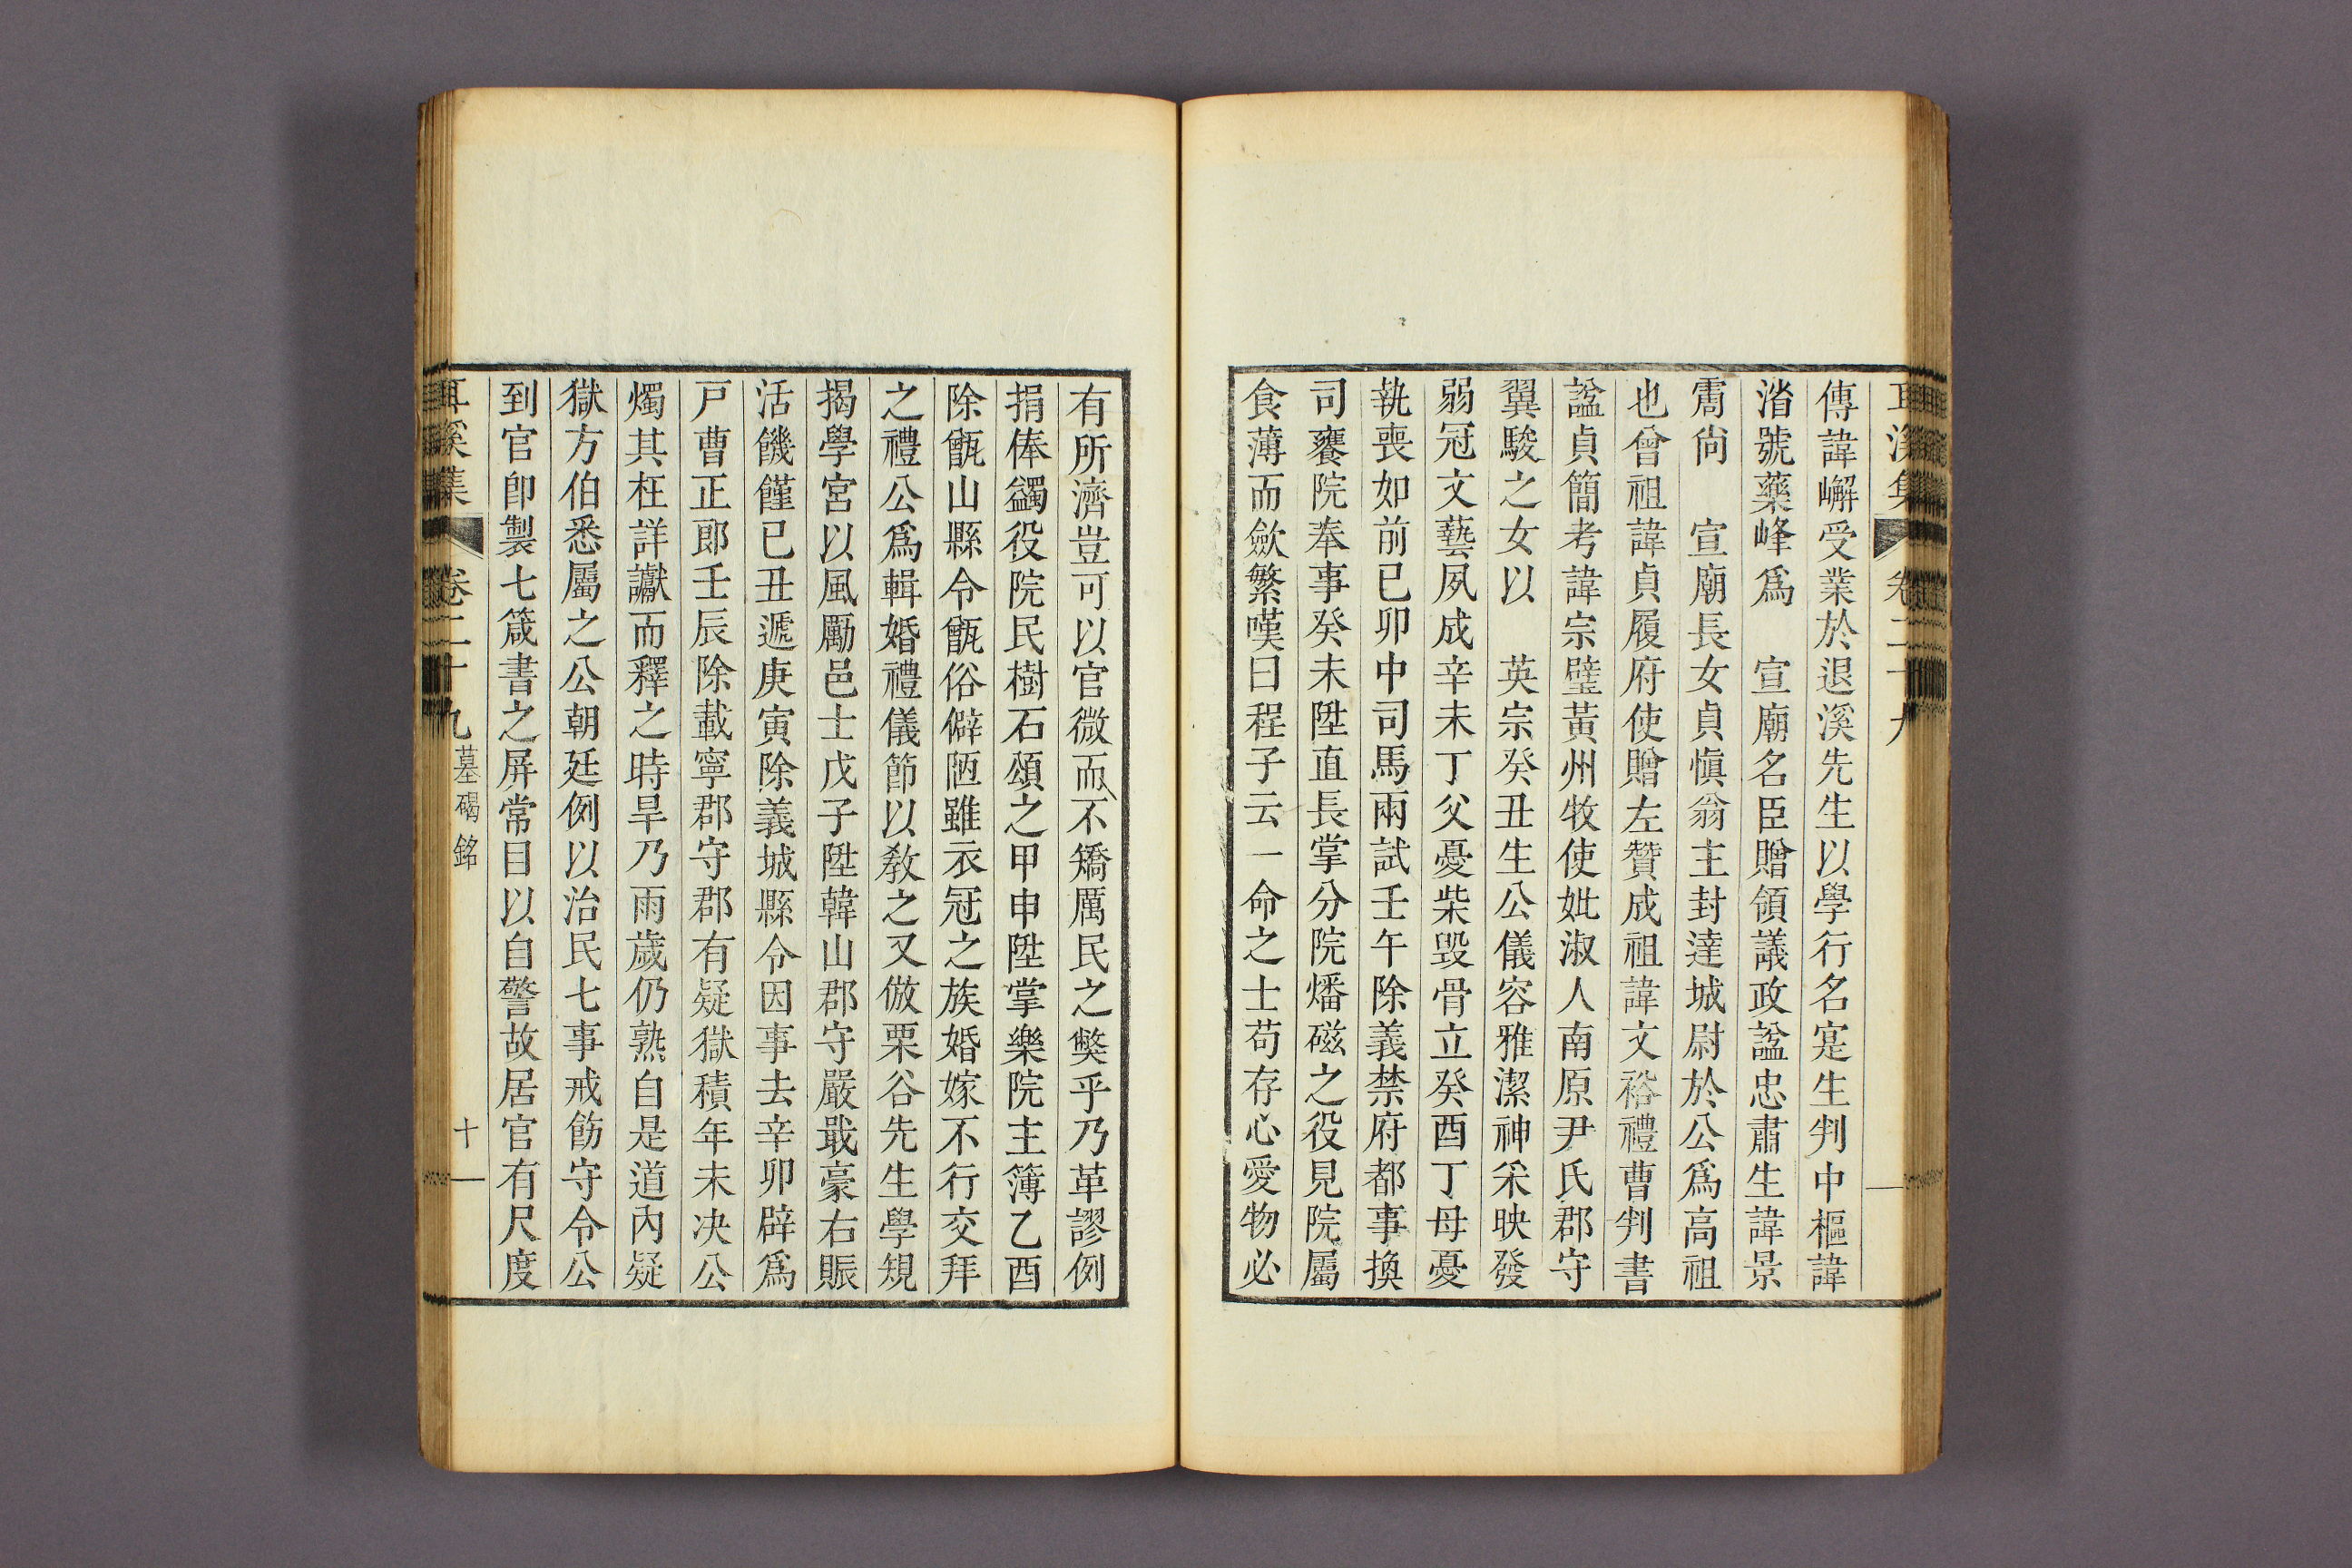 耳溪集 卷二十九
傳諱嶰受業於退溪先生以學行名寔生判中樞諱
渻號藥峰爲 宣廟名臣贈領議政諡忠肅生諱景
霌尙 宣廟長女貞愼翁主封達城尉於公爲高祖
也曾祖諱貞履府使贈左贊成祖諱文裕禮曹判書
諡貞簡考諱宗璧黃州牧使妣淑人南原尹氏郡守
翼駿之女以 英宗癸丑生公儀容雅潔神采映發
弱冠文藝夙成辛未丁父憂柴毀骨立癸酉丁母憂
執喪如前已卯中司馬兩試壬午除義禁府都事換
司饔院奉事癸未陞直長掌分院燔磁之役見院屬
食薄而歛繁嘆曰程子云一命之士苟存心愛物必
有所濟豈可以官微而不矯厲民之獘乎乃革謬例
捐俸蠲役院民樹石頌之甲申陞掌樂院主簿乙酉
除甑山縣令甑俗僻陋雖衣冠之族婚嫁不行交拜
之禮公爲輯婚禮儀節以敎之又倣栗谷先生學規
揭學宮以風勵邑士戊子陞韓山郡守嚴戢豪右賑
活饑饉已丑遞庚寅除義城縣令因事去辛卯辟爲
戶曹正郎壬辰除載寧郡守郡有疑獄積年未決公
燭其枉詳讞而釋之時旱乃雨歲仍熟自是道內疑
獄方伯悉屬之公朝廷例以治民七事戒飭守令公
到官卽製七箴書之屏常目以自警故居官有尺度
耳溪集 卷二十九 墓碣銘 十一